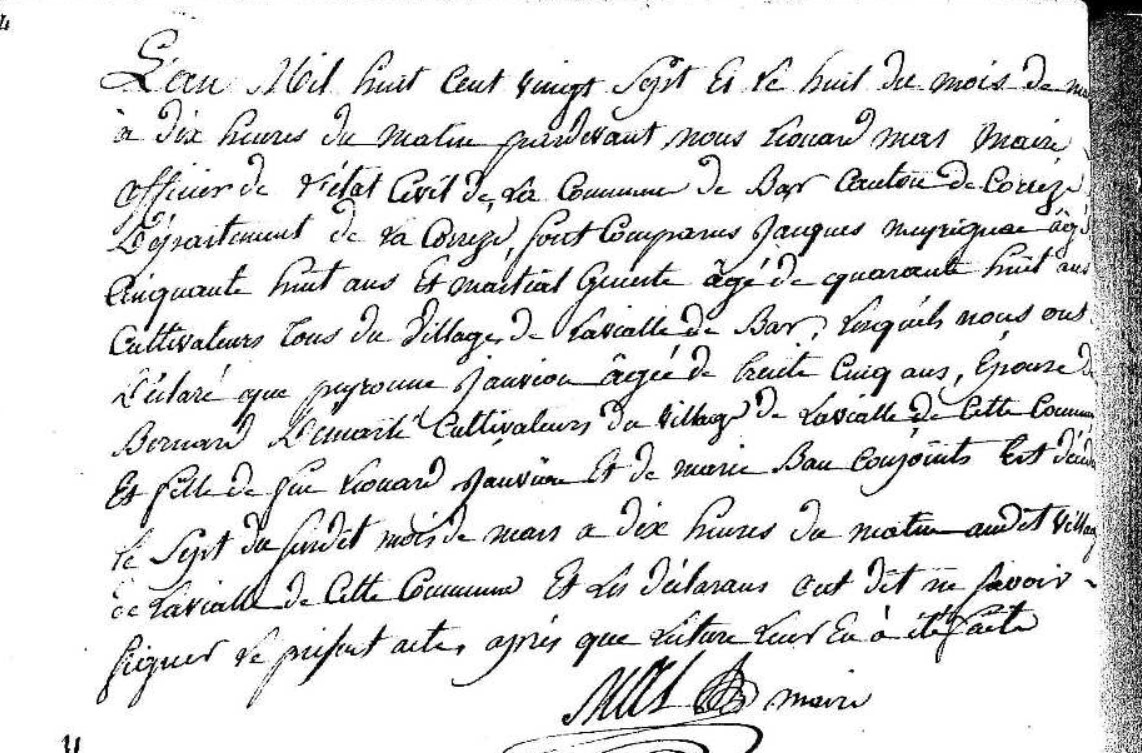 L'an Mil huit Cent vingt Sept Et le huit du mois de
à dix heures du matin pardevant nous Léonard mas Maire
officier de l'état Civil de La Commune de Bar Canton de Corrèze
Département de La Corrèze, sont Comparus Jacques meyrignac âgé
Cinquante huit ans Et martial âgé de quarante huit ans
Cultivateurs tous du village de Lavialle de Bar, Lesquels nous ont
Déclaré que peyronne Janvion âgée de trente Cinq ans, Épouse de
Bernard Cultivateurs du village de Lavialle de Cette Commune
Et fille de feu Léonard Janvion Et de marie Bau Conjoints Est
le Sept du susdit mois de mars a dix heures du matin audit village
de Lavialle de Cette Commune Et Les déclarans ont dit ne savoir
signer le présent acte, après que Lecture Leur En à été faite
Mas maire